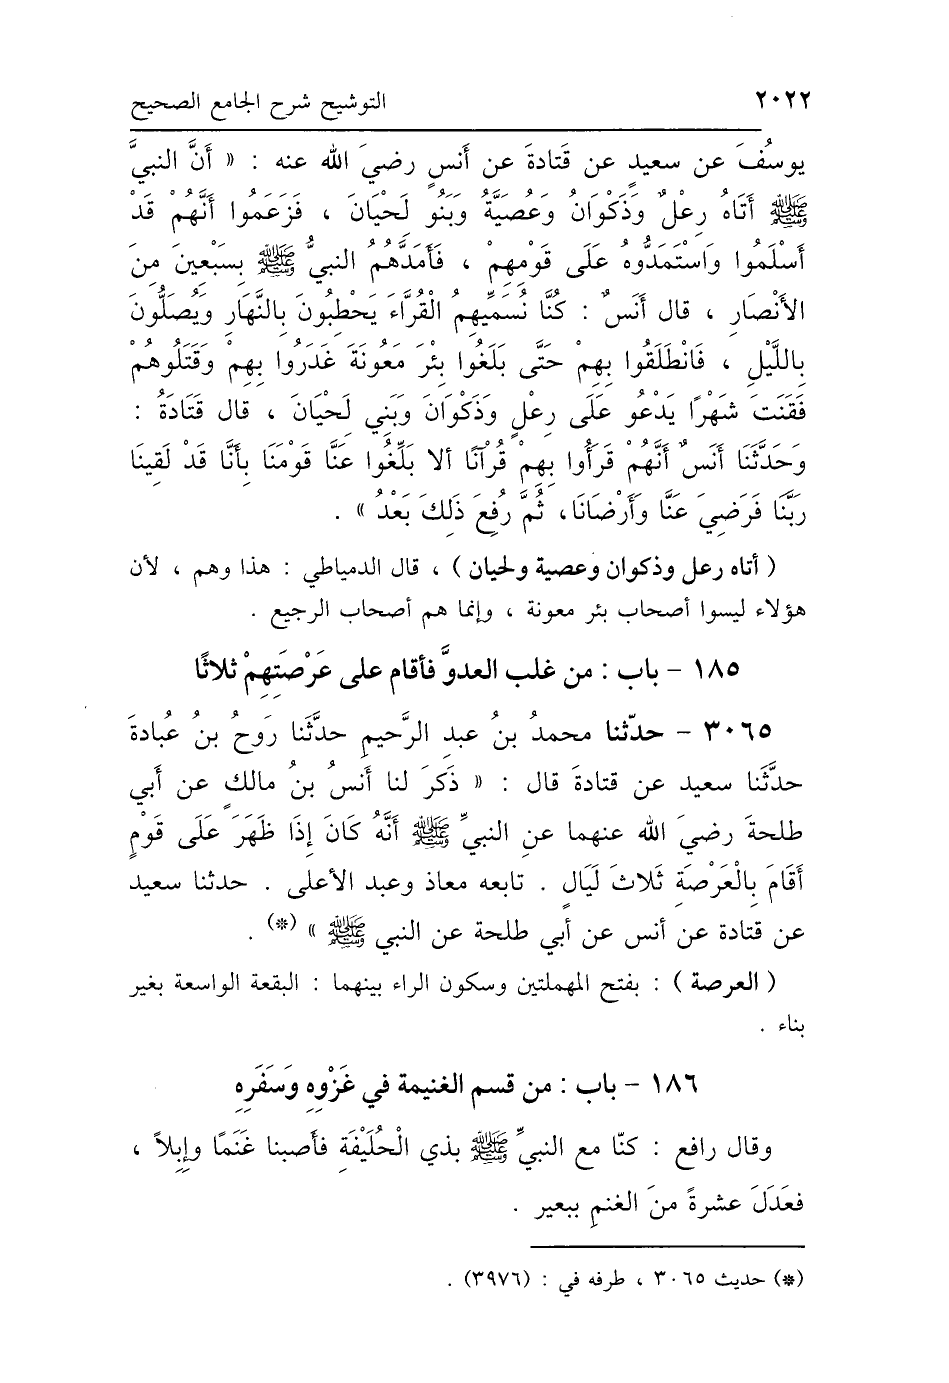 ٢٠٢٢ التوشيح شرح الجامع الصحيح
يوسُفَ عن سعيدٍ عن قَتادةَ عن أنسٍ رضيَ الله عنه : « أنَّ النبيَّ
ﷺ أَتَاهُ رِعْلٌ وَذَكْوَانُ وَعُصَيَّةُ وَبَنُو لَحْيَانَ ، فَزَعَمُوا أَنَّهُمْ قَدْ
أَسْلَمُوا وَاسْتَمَدُّوهُ عَلَى قَوْمِهِمْ ، فَأَمَدَّهُمُ النبيُّ ﷺ بِسَبْعِينَ مِنَ
الأَنْصَارِ ، قال أَنَسٌ : كُنَّا نُسَمِّيهِمُ الْقُرَّاءَ يَحْطِبُونَ بِالنَّهَارِ وَيُصَلُّونَ
بِاللَّيْلِ ، فَانْطَلَقُوا بِهِمْ حَتَّى بَلَغُوا بِئْرَ مَعُونَةَ غَدَرُوا بِهِمْ وَقَتَلُوهُمْ
فَقَنَتَ شَهْرًا يَدْعُو عَلَى رِعْلٍ وَذَكْوَانَ وَبَنِي لَحْيَانَ ، قال قَتَادَةُ :
وَحَدَّثَنَا أَنَسٌ أَنَّهُمْ قَرَأُوا بِهِمْ قُرْآنًا ألا بَلِّغُوا عَنَّا قَوْمَنَا بِأَنَّا قَدْ لَقِينَا
رَبَّنَا فَرَضِيَ عَنَّا وَأَرْضَانَا، ثُمَّ رُفِعَ ذَلِكَ بَعْدُ » .
( أتاه رعل وذكوان وعصية ولحيان ) ، قال الدمياطي : هذا وهم ، لأن
هؤلاء ليسوا أصحاب بئر معونة ، وإنما هم أصحاب الرجيع .
١٨٥ - باب : من غلب العدوَّ فأقام على عَرْصَتِهِمْ ثلاثًا
٣٠٦٥ - حدّثنا محمدُ بنُ عبدِ الرَّحيمِ حدَّثَنا رَوحُ بنُ عُبادةَ
حدَّثَنا سعيد عن قتادةَ قال : « ذَكرَ لنا أنسُ بنُ مالكٍ عن أبي
طلحةَ رضيَ الله عنهما عنِ النبيِّ ﷺ أَنَّهُ كَانَ إِذَا ظَهَرَ عَلَى قَوْمٍ
أَقَامَ بِالْعَرْصَةِ ثَلَاثَ لَيَالٍ . تابعه معاذ وعبد الأعلى . حدثنا سعيد
عن قتادة عن أنس عن أبي طلحة عن النبي ﷺ » (*) .
( العرصة ) : بفتح المهملتين وسكون الراء بينهما : البقعة الواسعة بغير
بناء .
١٨٦ - باب : من قسم الغنيمة في غَزْوِهِ وَسَفَرِهِ
وقال رافع : كنّا مع النبيِّ ﷺ بذي الْحُلَيْفَةِ فأصبنا غَنَمًا وإبلاً ،
فعَدَلَ عشرةً منَ الغنمِ ببعير .
(*) حديث ٣٠٦٥ ، طرفه في : (٣٩٧٦) .